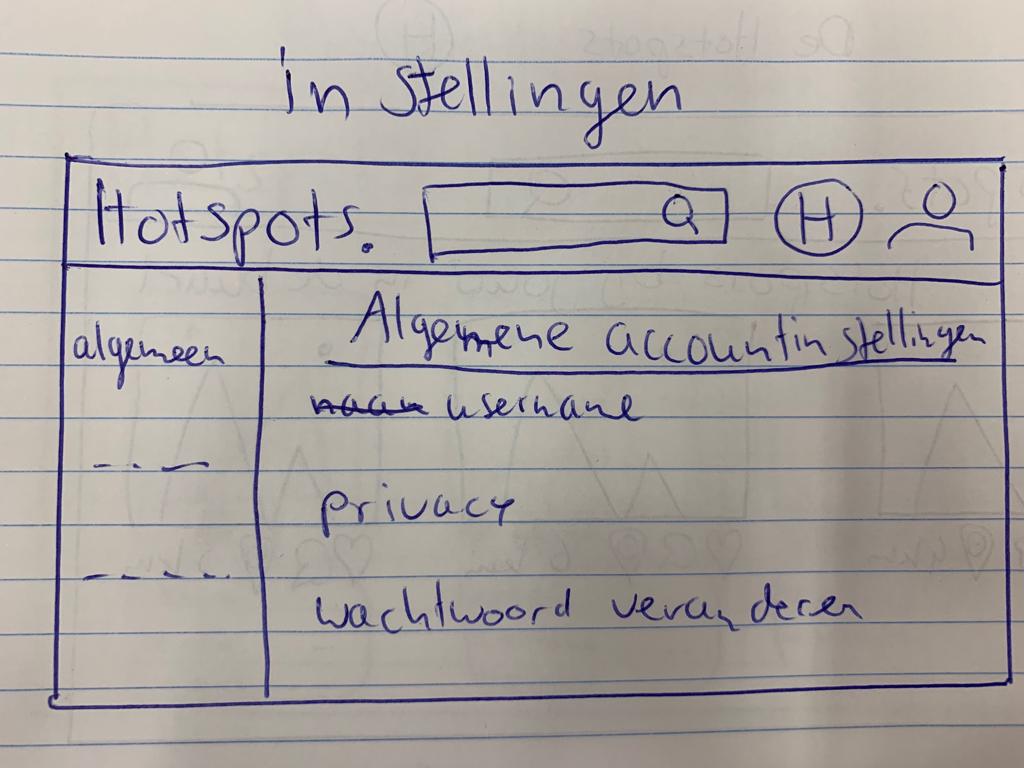 instellingen
Hotspots. H
algemeen
Algemene accountinstellingen
naam username
privacy
wachtwoord veranderen